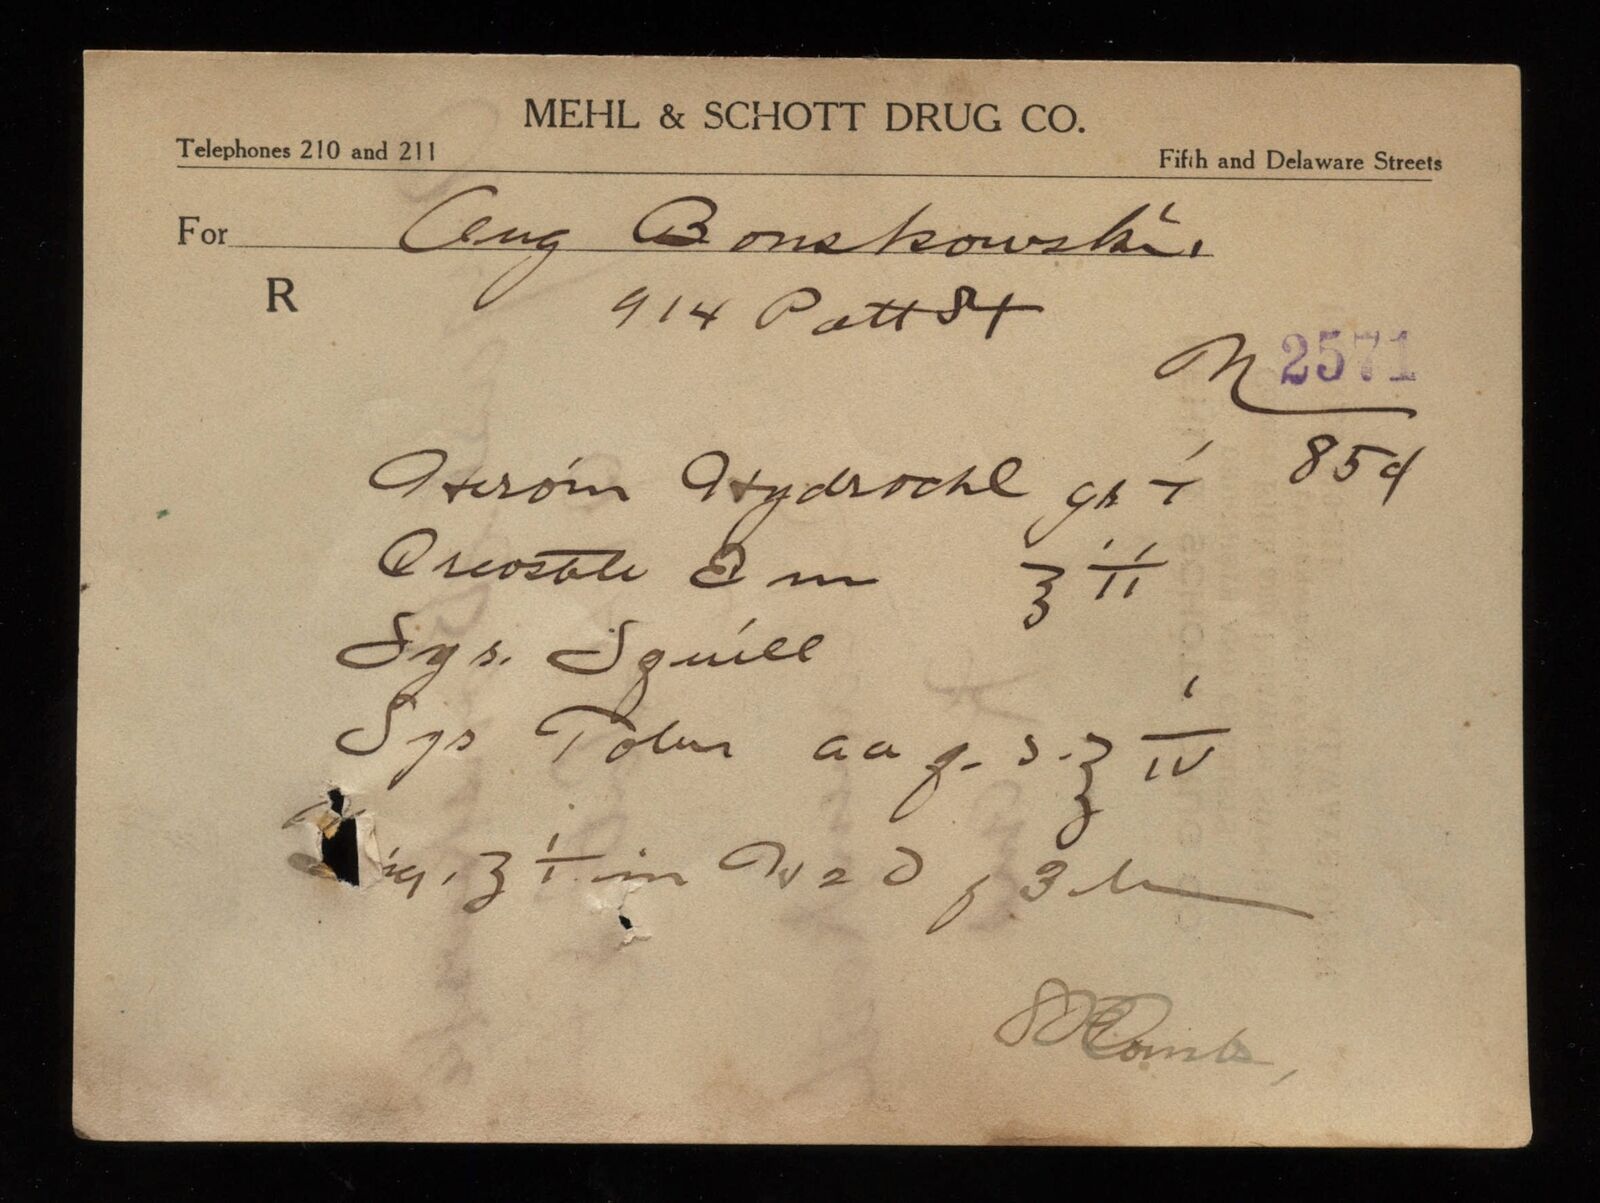 MEHL & SCHOTT DRUG CO.
Telephones 210 and 211 Fifth and Delaware Streets
For Aug Bonskowski.
R 914 Patt St
N 2571
Heroin Hydrochl gr i 85¢
Creosote Em ℥ ii
Syr. Squill
Syr Tolu aa q.s. ℥ iv
Sig. ʒ i in H2O q 3 h